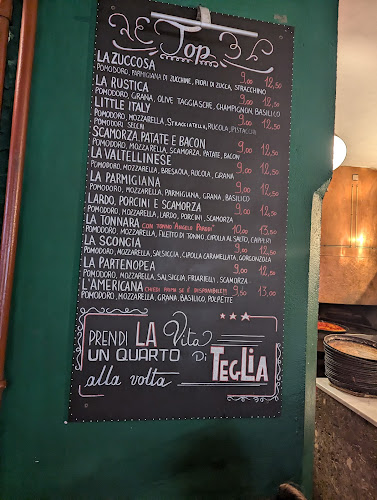 Top
LA ZUCCOSA 9,00 12,50
POMODORO, PARMIGIANA DI ZUCCHINE, FIORI DI ZUCCA, STRACCHINO
LA RUSTICA 9,00 12,50
POMODORO, GRANA, OLIVE TAGGIASCHE, CHAMPIGNON, BASILICO
LITTLE ITALY 9,00 12,50
POMODORO, MOZZARELLA, STRACCIATELLA, RUCOLA, PISTACCHI
POMODORI SECCHI
SCAMORZA, PATATE E BACON 9,00 12,50
POMODORO, MOZZARELLA, SCAMORZA, PATATE, BACON
LA VALTELLINESE 9,00 12,50
POMODORO, MOZZARELLA, BRESAOLA, RUCOLA, GRANA
LA PARMIGIANA 9,00 12,50
POMODORO, MOZZARELLA, PARMIGIANA, GRANA, BASILICO
LARDO, PORCINI E SCAMORZA 9,00 12,50
POMODORO, MOZZARELLA, LARDO, PORCINI, SCAMORZA
LA TONNARA CON TONNO ANGELO PARODI 10,00 13,50
POMODORO, MOZZARELLA, FILETTO DI TONNO, CIPOLLA AL SALTO, CAPPERI
LA SCONCIA 9,00 12,50
POMODORO, MOZZARELLA, SALSICCIA, CIPOLLA CARAMELLATA, GORGONZOLA
LA PARTENOPEA 9,00 12,50
POMODORO, MOZZARELLA, SALSICCIA, FRIARIELLI, SCAMORZA
L'AMERICANA CHIEDI PRIMA SE È DISPONIBILE!!! 9,50 13,00
POMODORO, MOZZARELLA, GRANA, BASILICO, POLPETTE
PRENDI LA Vita
UN QUARTO Di TEGLIA
alla volta